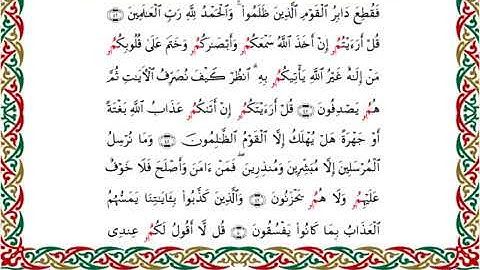 فَقُطِعَ دَابِرُ ٱلْقَوْمِ ٱلَّذِينَ ظَلَمُواْ ۚ وَٱلْحَمْدُ لِلَّهِ رَبِّ ٱلْعَٰلَمِينَ
قُلْ أَرَءَيْتُمُۥ إِنْ أَخَذَ ٱللَّهُ سَمْعَكُمُۥ وَأَبْصَٰرَكُمُۥ وَخَتَمَ عَلَىٰ قُلُوبِكُمُۥ
مَنْ إِلَٰهٌ غَيْرُ ٱللَّهِ يَأْتِيكُمُۥ بِهِ ۗ ٱنظُرْ كَيْفَ نُصَرِّفُ ٱلْأٓيَٰتِ ثُمَّ
هُمُۥ يَصْدِفُونَ قُلْ أَرَءَيْتَكُمُۥ إِنْ أَتَىٰكُمُۥ عَذَابُ ٱللَّهِ بَغْتَةً
أَوْ جَهْرَةً هَلْ يُهْلَكُ إِلَّا ٱلْقَوْمُ ٱلظَّٰلِمُونَ وَمَا نُرْسِلُ
ٱلْمُرْسَلِينَ إِلَّا مُبَشِّرِينَ وَمُنذِرِينَ ۖ فَمَنْ ءَامَنَ وَأَصْلَحَ فَلَا خَوْفٌ
عَلَيْهِمُۥ وَلَا هُمُۥ يَحْزَنُونَ وَٱلَّذِينَ كَذَّبُواْ بِـَٔايَٰتِنَا يَمَسُّهُمُ
ٱلْعَذَابُ بِمَا كَانُواْ يَفْسُقُونَ قُل لَّا أَقُولُ لَكُمُۥ عِندِى